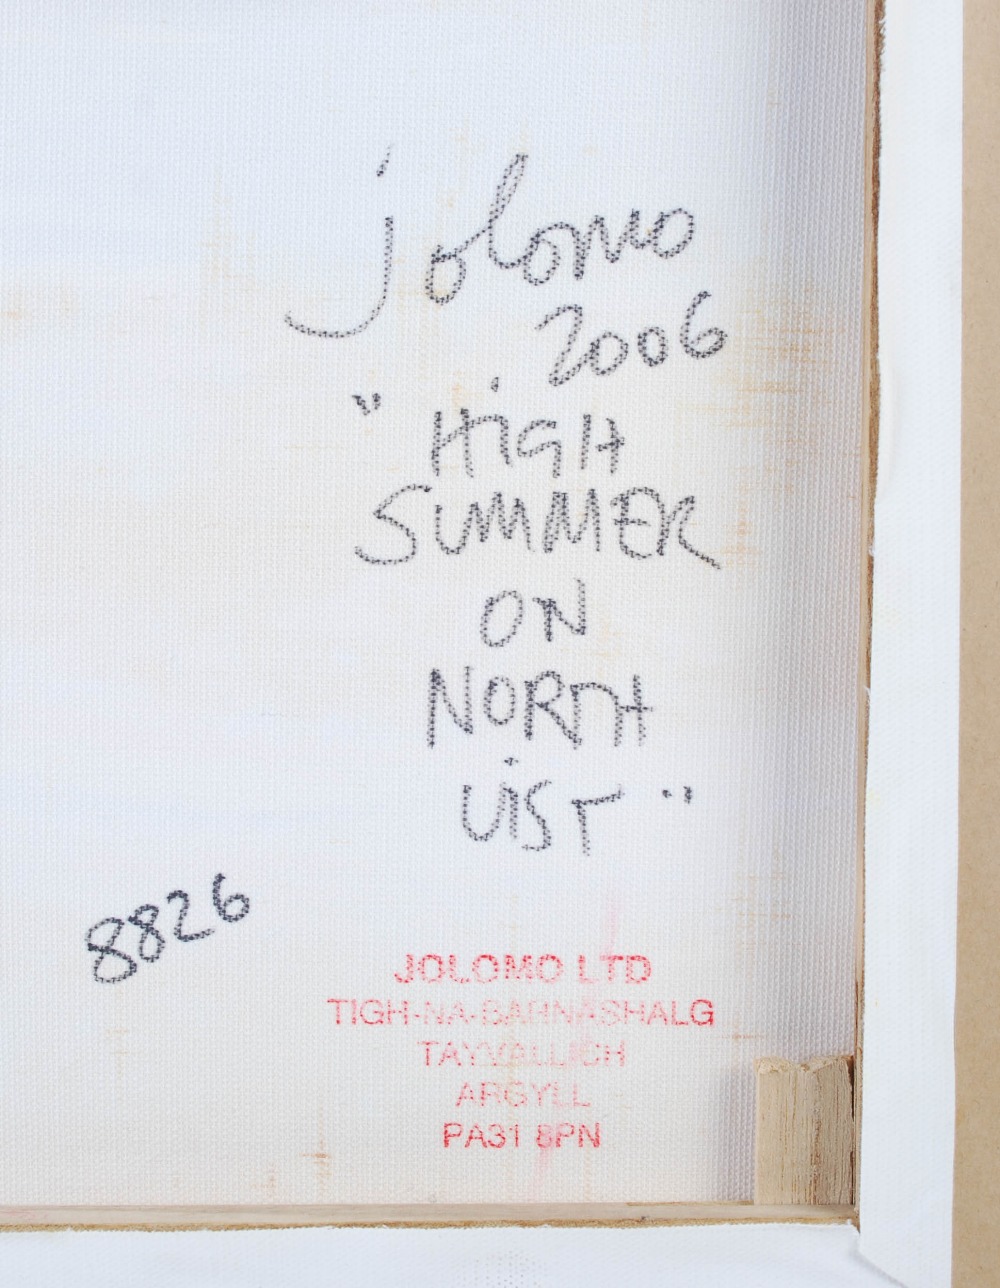 jolomo
2006
"HiGH
SUMMER
ON
NORTH
UiST"
8826
JOLOMO LTD
TIGH-NA-BARNASHALG
TAYVALLICH
ARGYLL
PA31 8PN